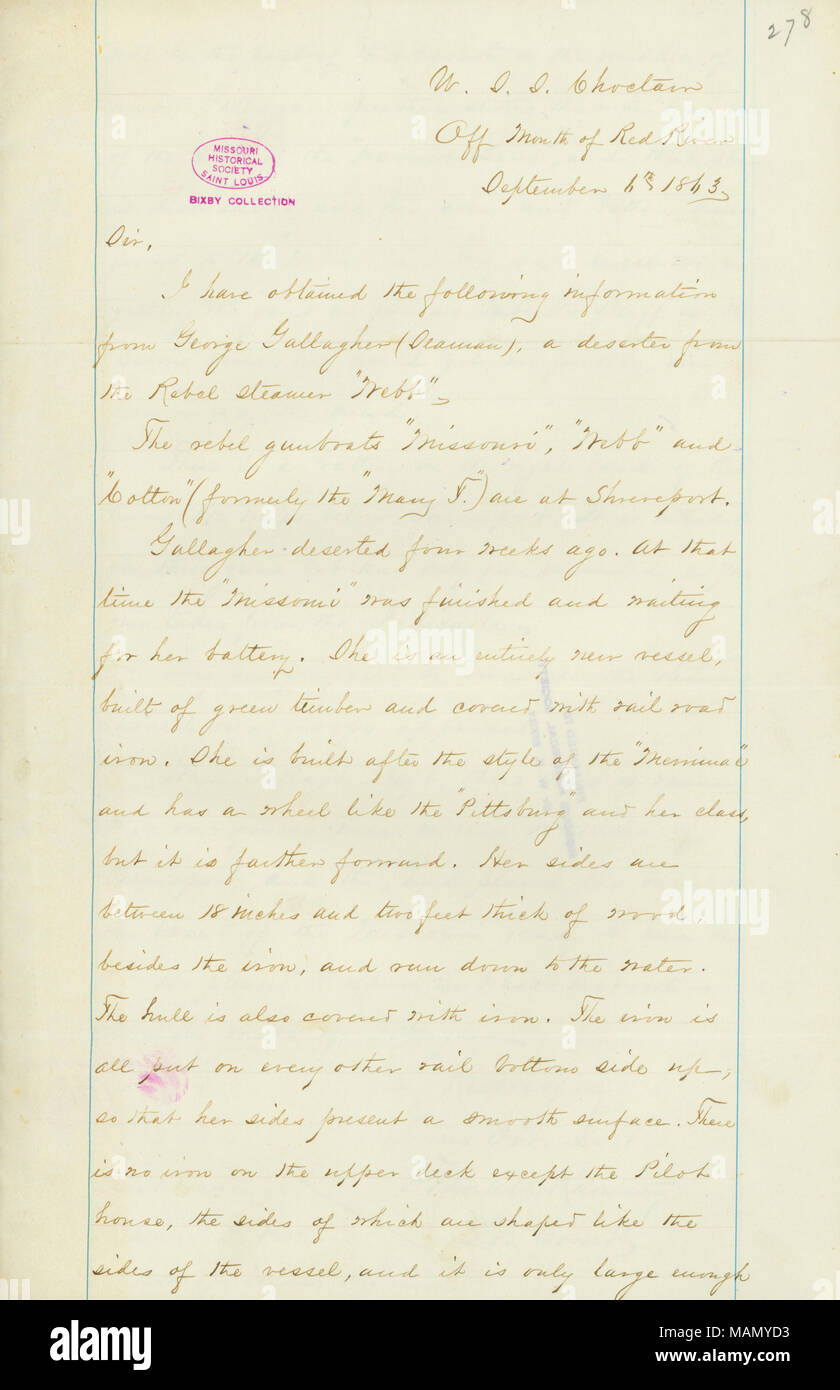 278
U. S. S. Choctaw
Off Mouth of Red River
September 6th 1863,
MISSOURI
HISTORICAL
SOCIETY
SAINT LOUIS
BIXBY COLLECTION
Sir,
I have obtained the following information
from George Gallagher (Seaman), a deserter from
the Rebel steamer "Webb",
The rebel gunboats "Missouri", "Webb" and
"Cotton" (formerly the "Mary T.") are at Shreveport.
Gallagher deserted four weeks ago. At that
time the "Missouri" was finished and waiting
for her battery. She is an entirely new vessel,
built of green timber and covered with rail road
iron. She is built after the style of the "Merrimac"
and has a wheel like the "Pittsburg" and her class,
but it is farther forward. Her sides are
between 18 inches and two feet thick of wood,
besides the iron, and run down to the water.
The hull is also covered with iron. The iron is
all put on every other rail bottom side up,
so that her sides present a smooth surface. There
is no iron on the upper deck except the Pilot
house, the sides of which are shaped like the
sides of the vessel, and it is only large enough
alamy
Image ID: MAMYD3
www.alamy.com